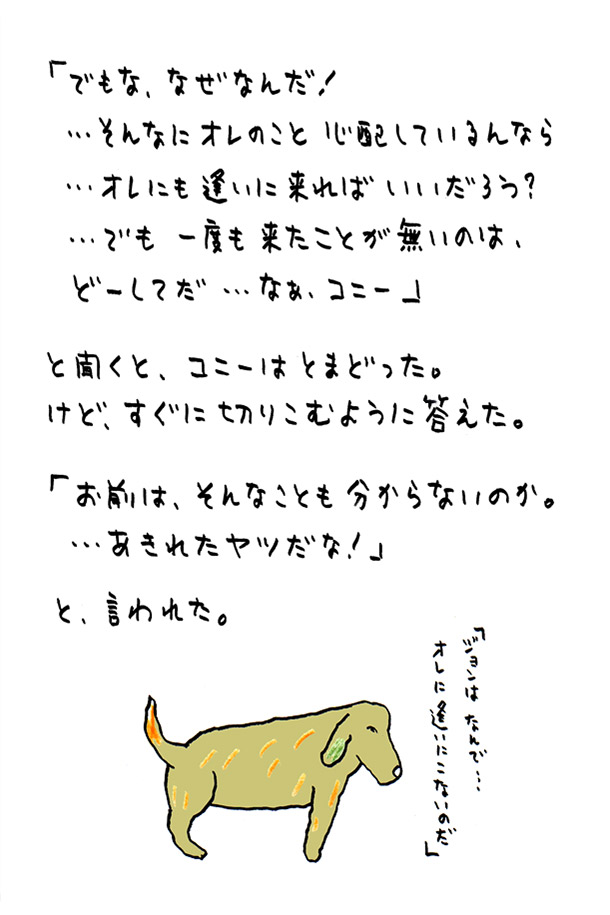 「でもな、なぜなんだ！
…そんなにオレのこと 心配しているんなら
…オレにも逢いに来ればいいだろう？
…でも 一度も来たことが無いのは、
どーしてだ …なぁ、コニー」
と聞くと、コニーはとまどった。
けど、すぐに切りこむように答えた。
「お前は、そんなことも分からないのか。
…あきれたヤツだな！」
と、言われた。
「ジョンは なんで…
オレに逢いにこないのだ」